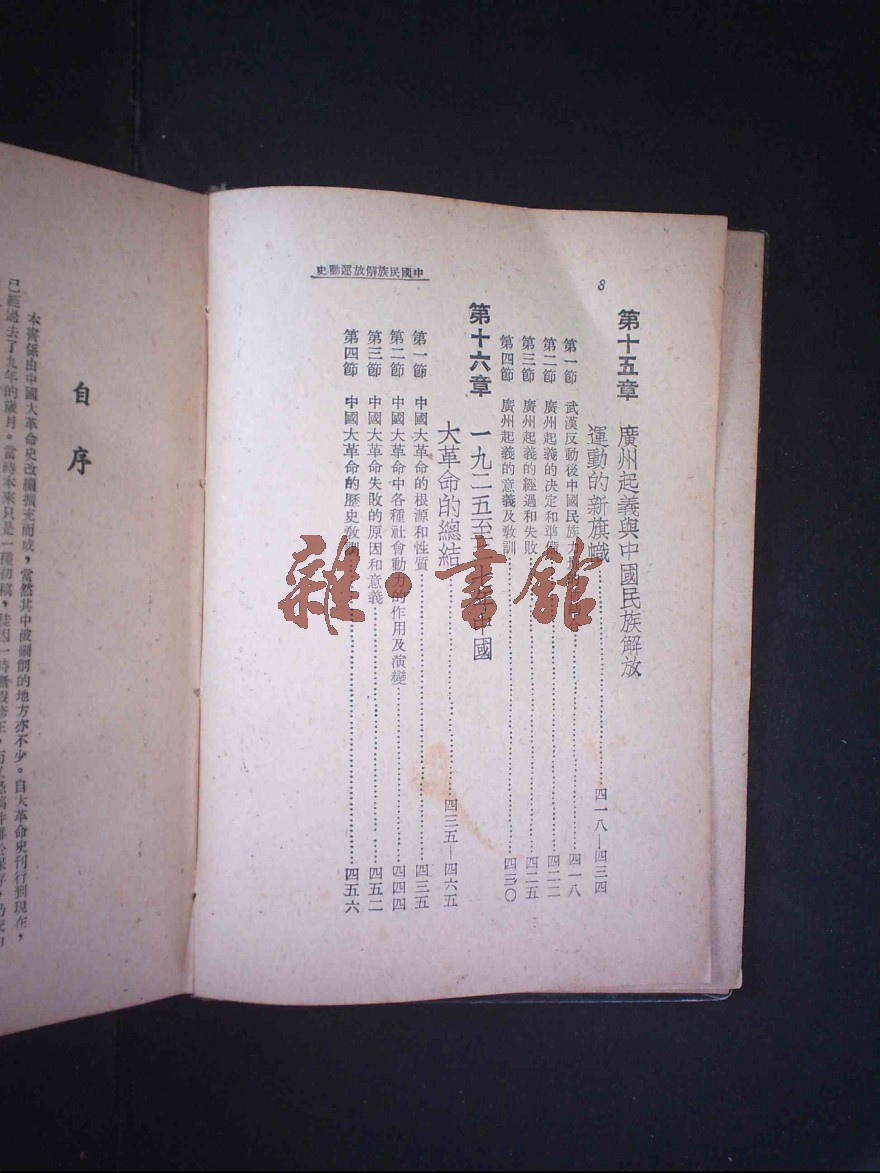 8
中國民族解放運動史
第十五章 廣州起義與中國民族解放
運動的新旗幟……四一八—四三四
第一節 武漢反動後中國民族……四一八
第二節 廣州起義的決定和準備……四二二
第三節 廣州起義的經過和失敗……四二五
第四節 廣州起義的意義及敎訓……四三〇
第十六章 一九二五至七年中國
大革命的總結……四三五—四六五
第一節 中國大革命的根源和性質……四三五
第二節 中國大革命中各種社會動力的作用及演變……四四四
第三節 中國大革命失敗的原因和意義……四五二
第四節 中國大革命的歷史敎訓……四五六
自序
本書係由中國大革命史改編擴充而成,當然其中被刪削的地方亦不少。自大革命史刊行到現在,
已經過去了九年的歲月。當時本來只是一種初稿,徒因一時無暇修正,
雜·書館